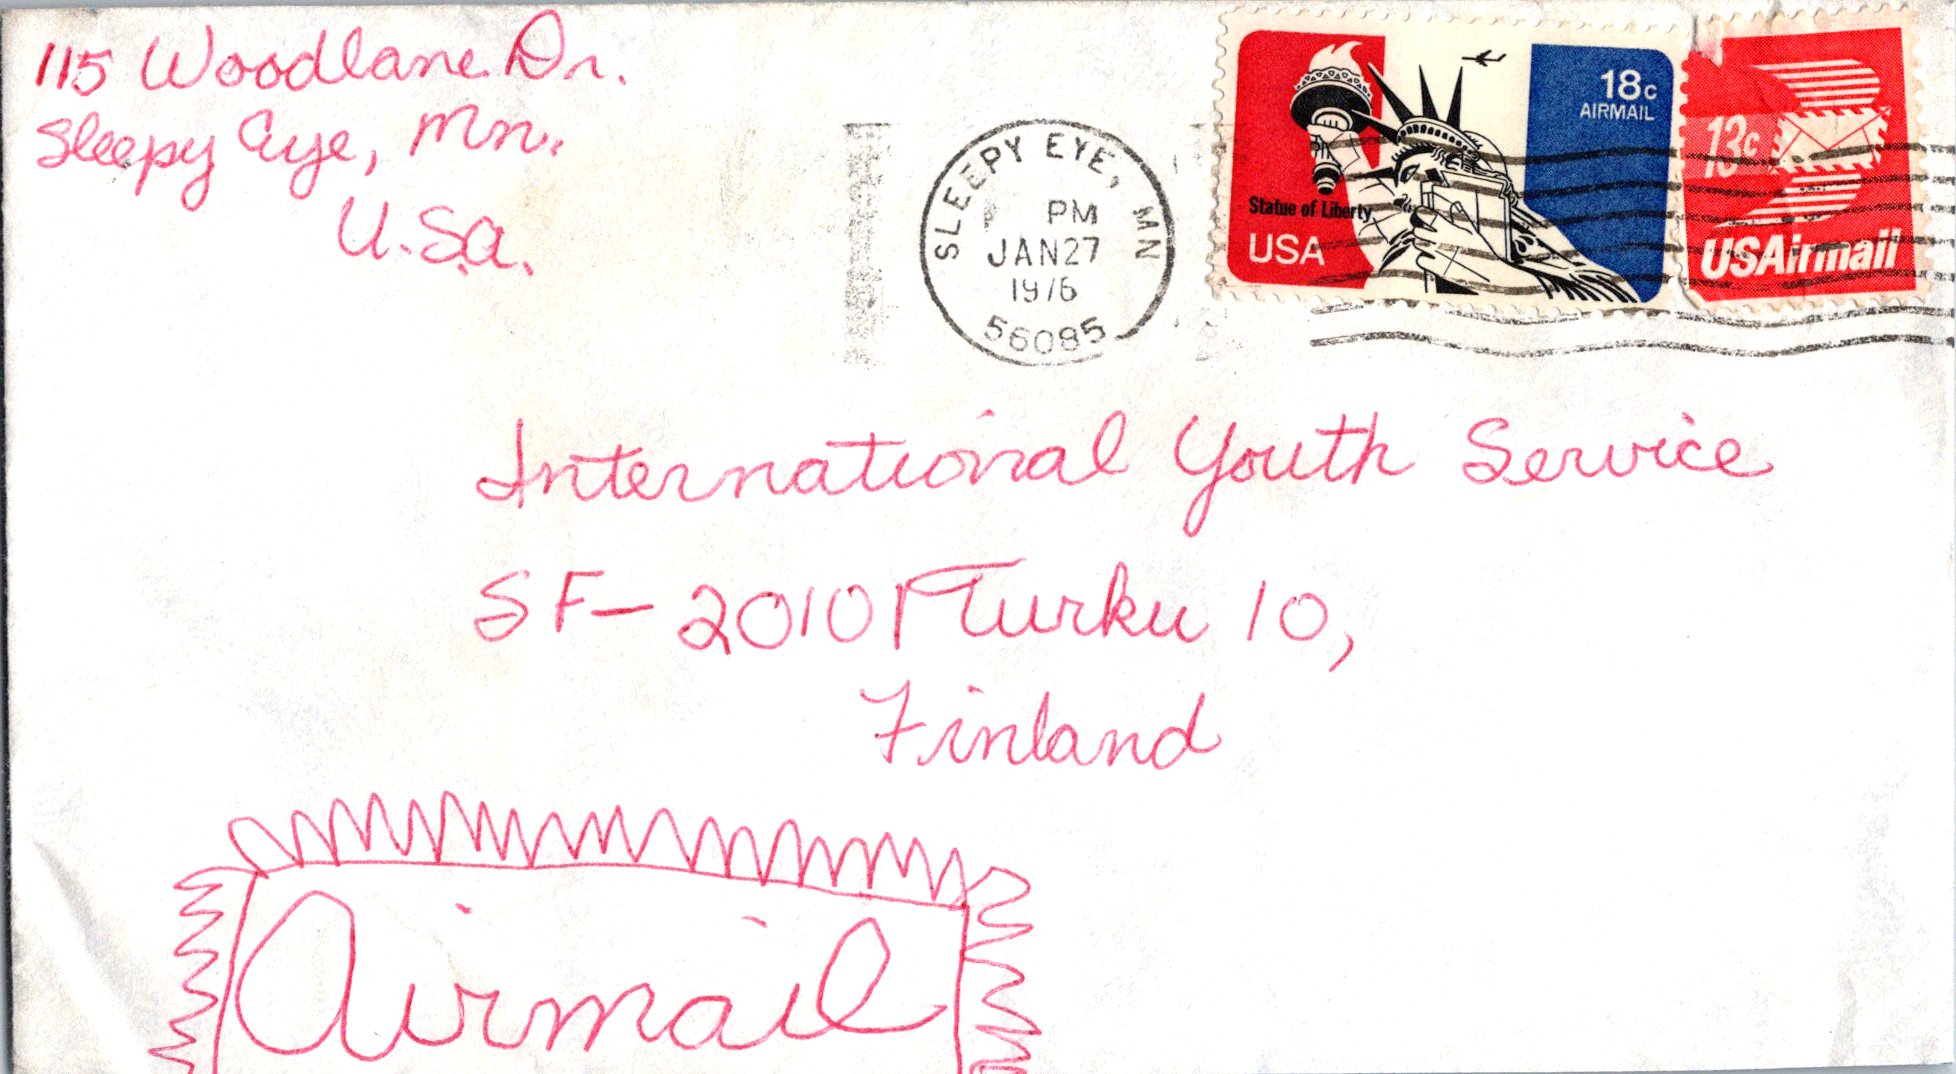 115 Woodlane Dr.
Sleepy Eye, Mn.
U.S.a.
SLEEPY EYE, MN
PM
JAN 27
1976
56085
18c
AIRMAIL
Statue of Liberty
USA
13c
USAirmail
International Youth Service
SF-20101 Turku 10,
Finland
Airmail